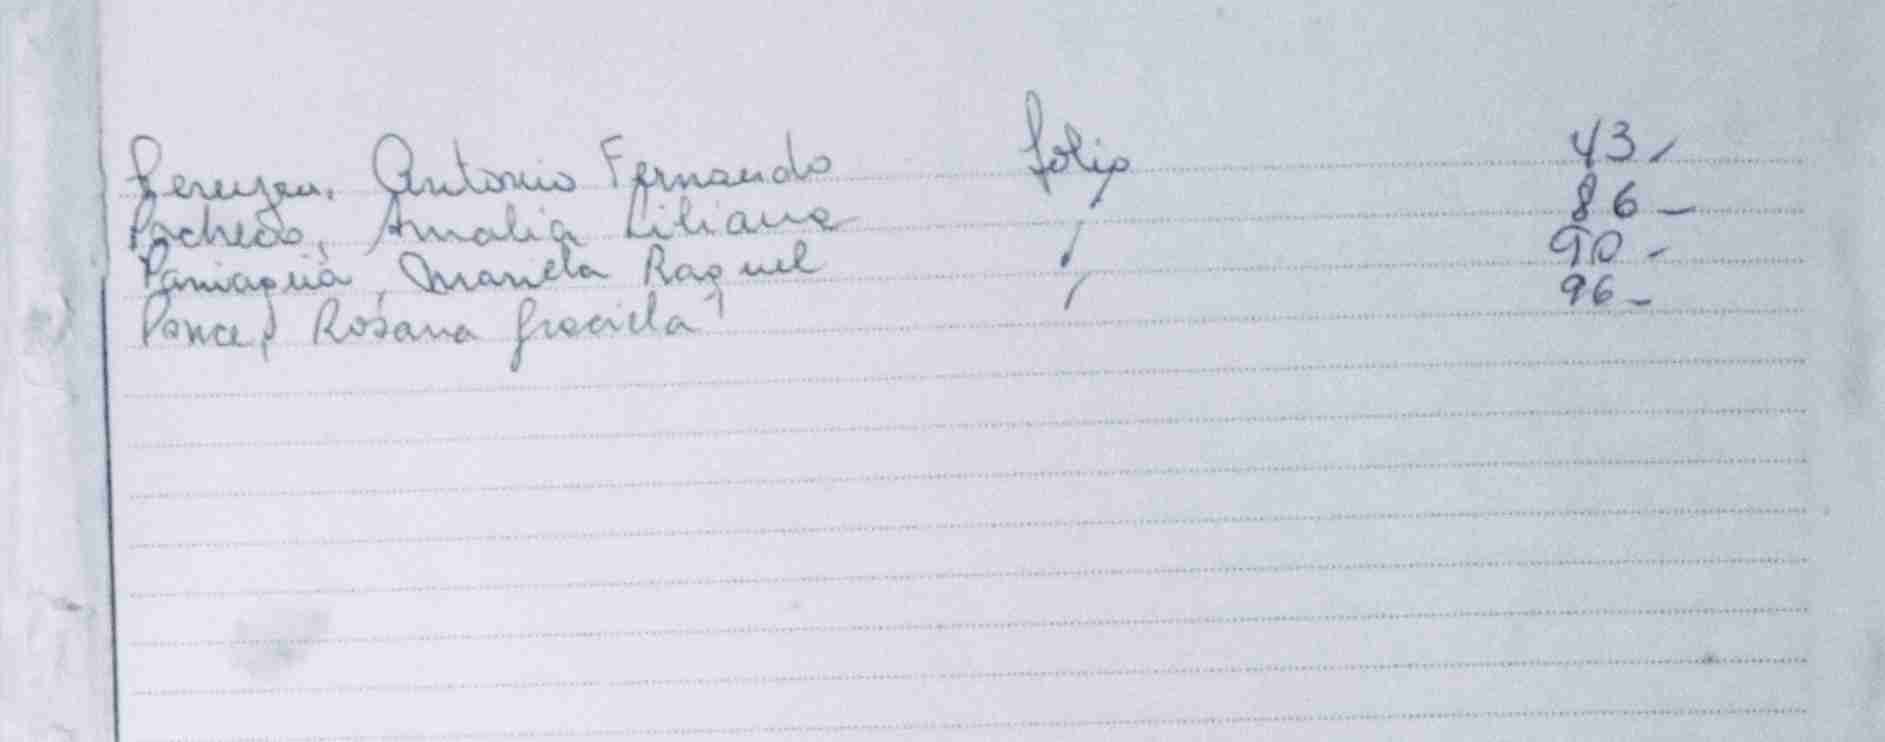 Antonio Fernando folio 43-
Pacheco, Amalia Liliana / 86-
Paniagua, Mariela Raquel / 90-
Ponce, Rosana Graciela / 96-